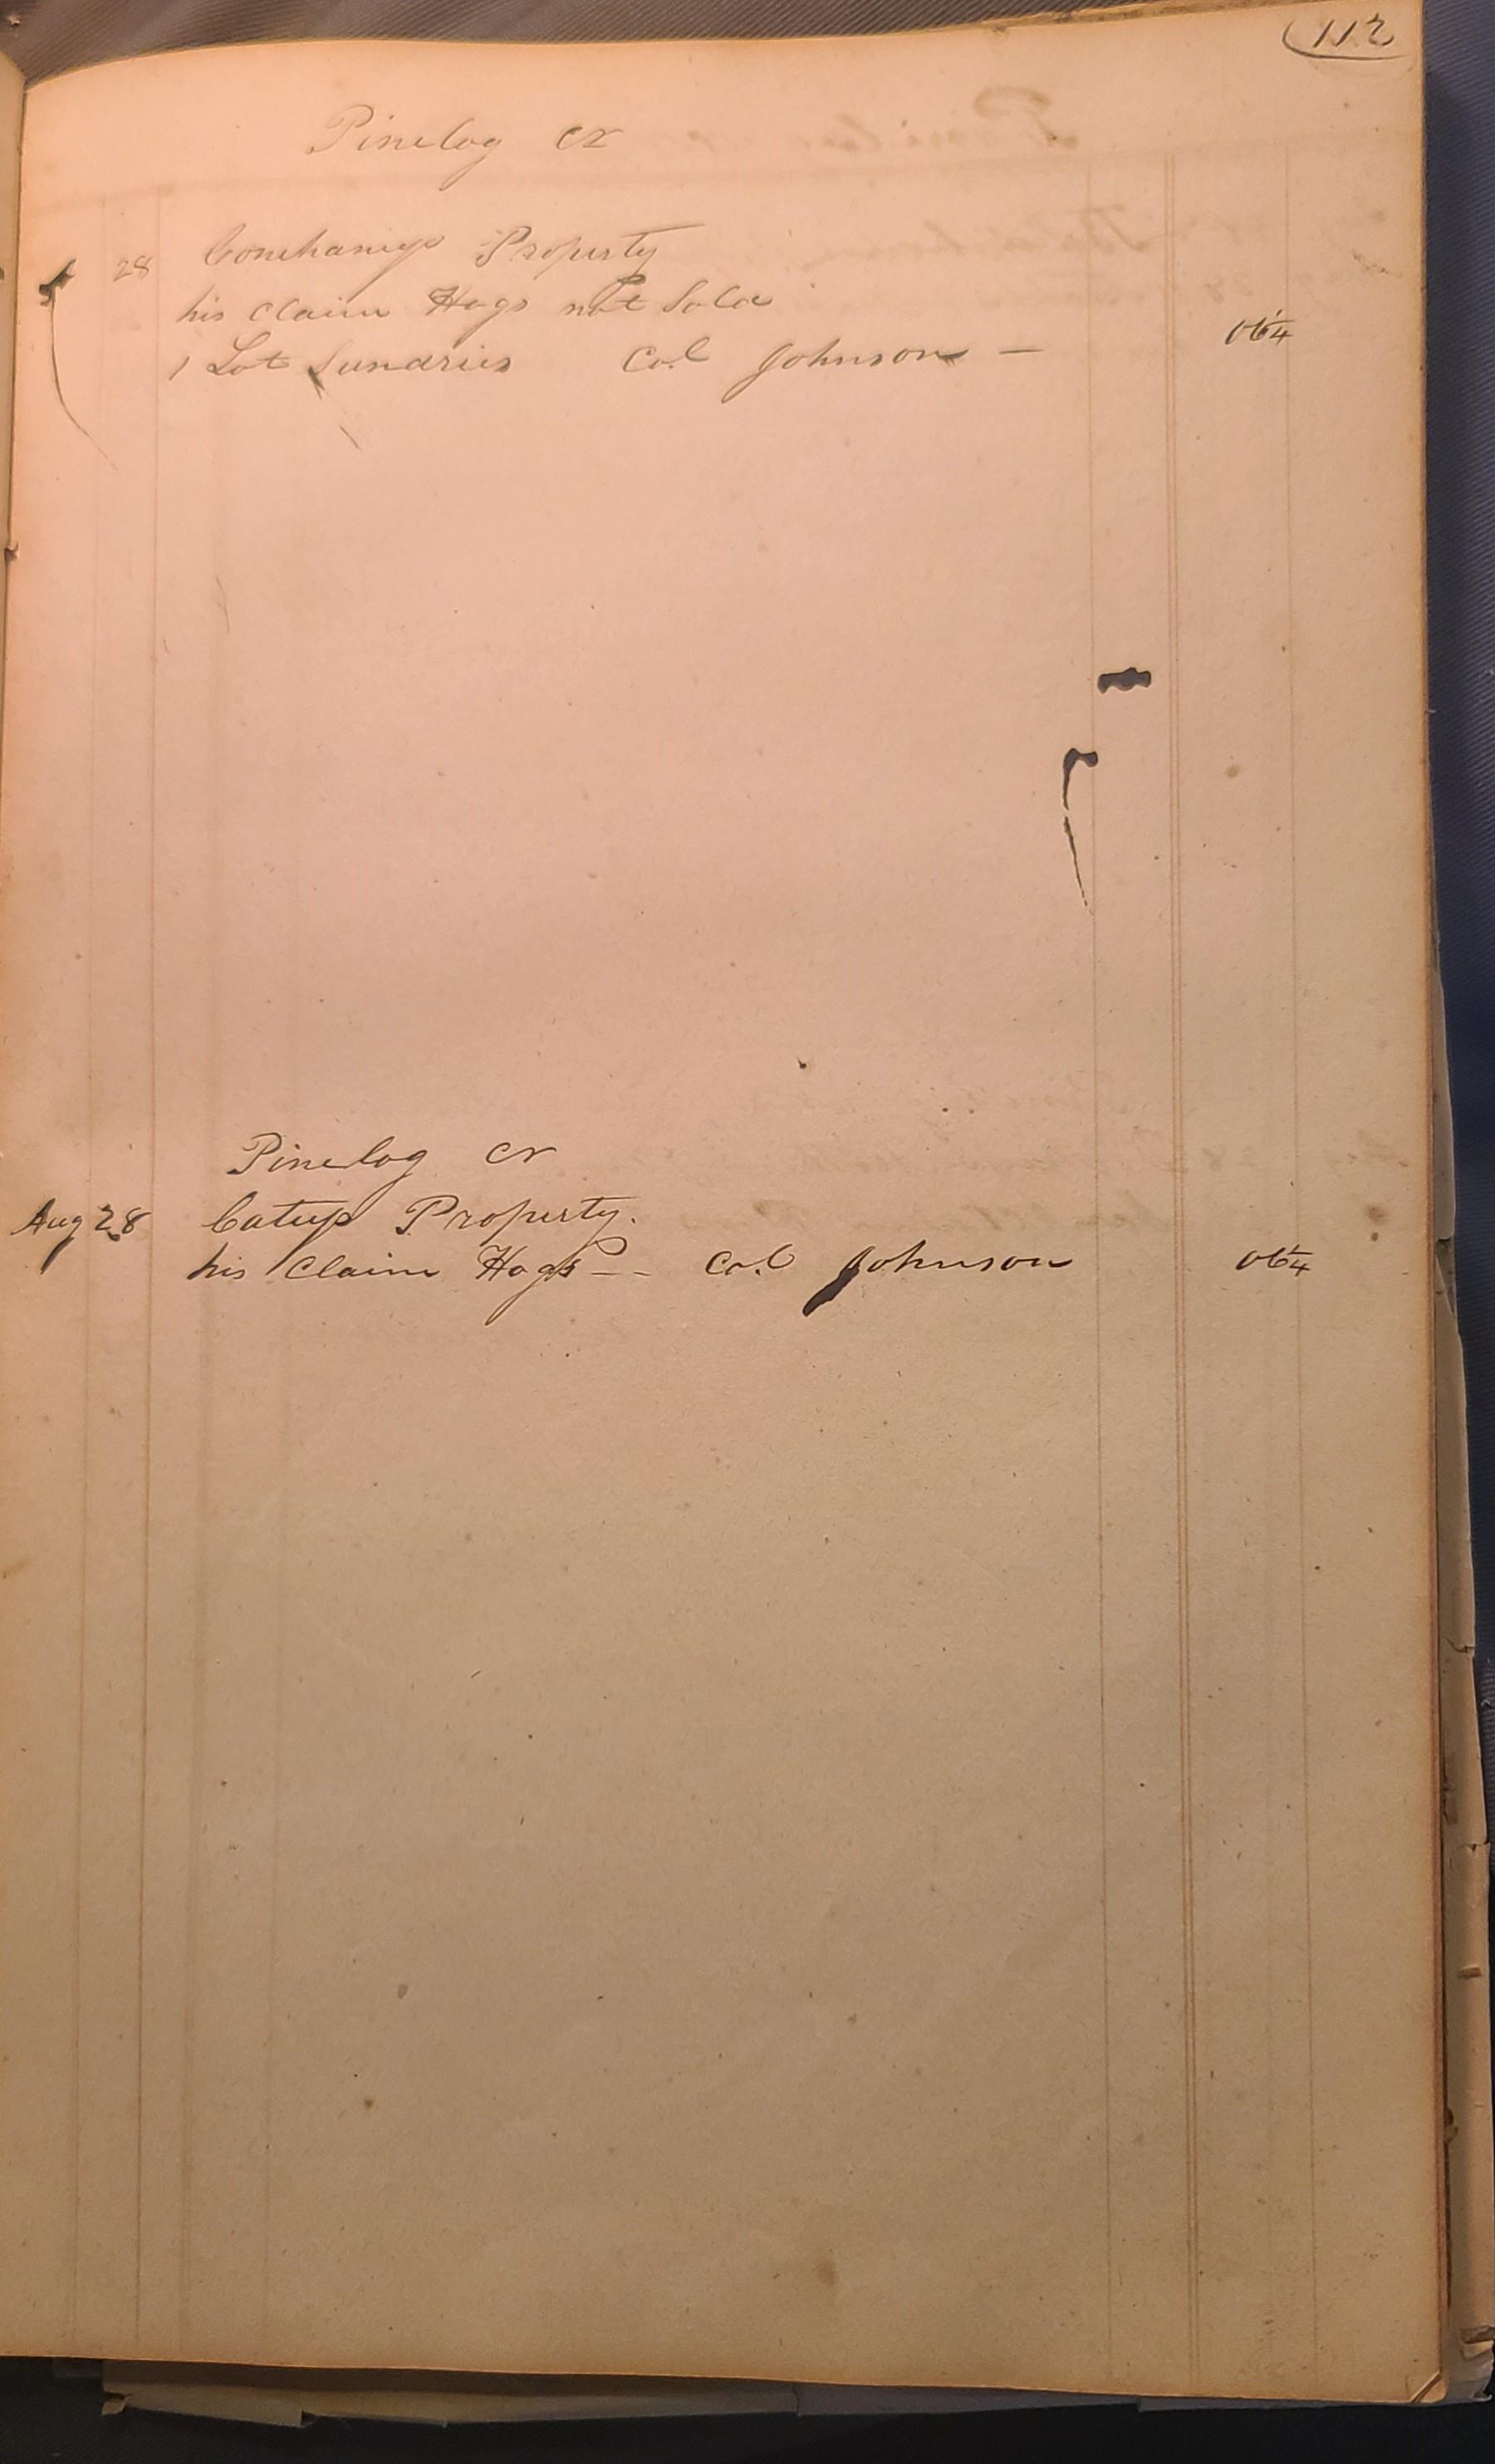 112
Pinelog cr
28 Property
his Claim Hogs not Sold
1 Lot Sundries Col Johnson — 06¼
Pinelog cr
Aug 28 Catup Property.
his Claim Hogs — - Col Johnson 06¼